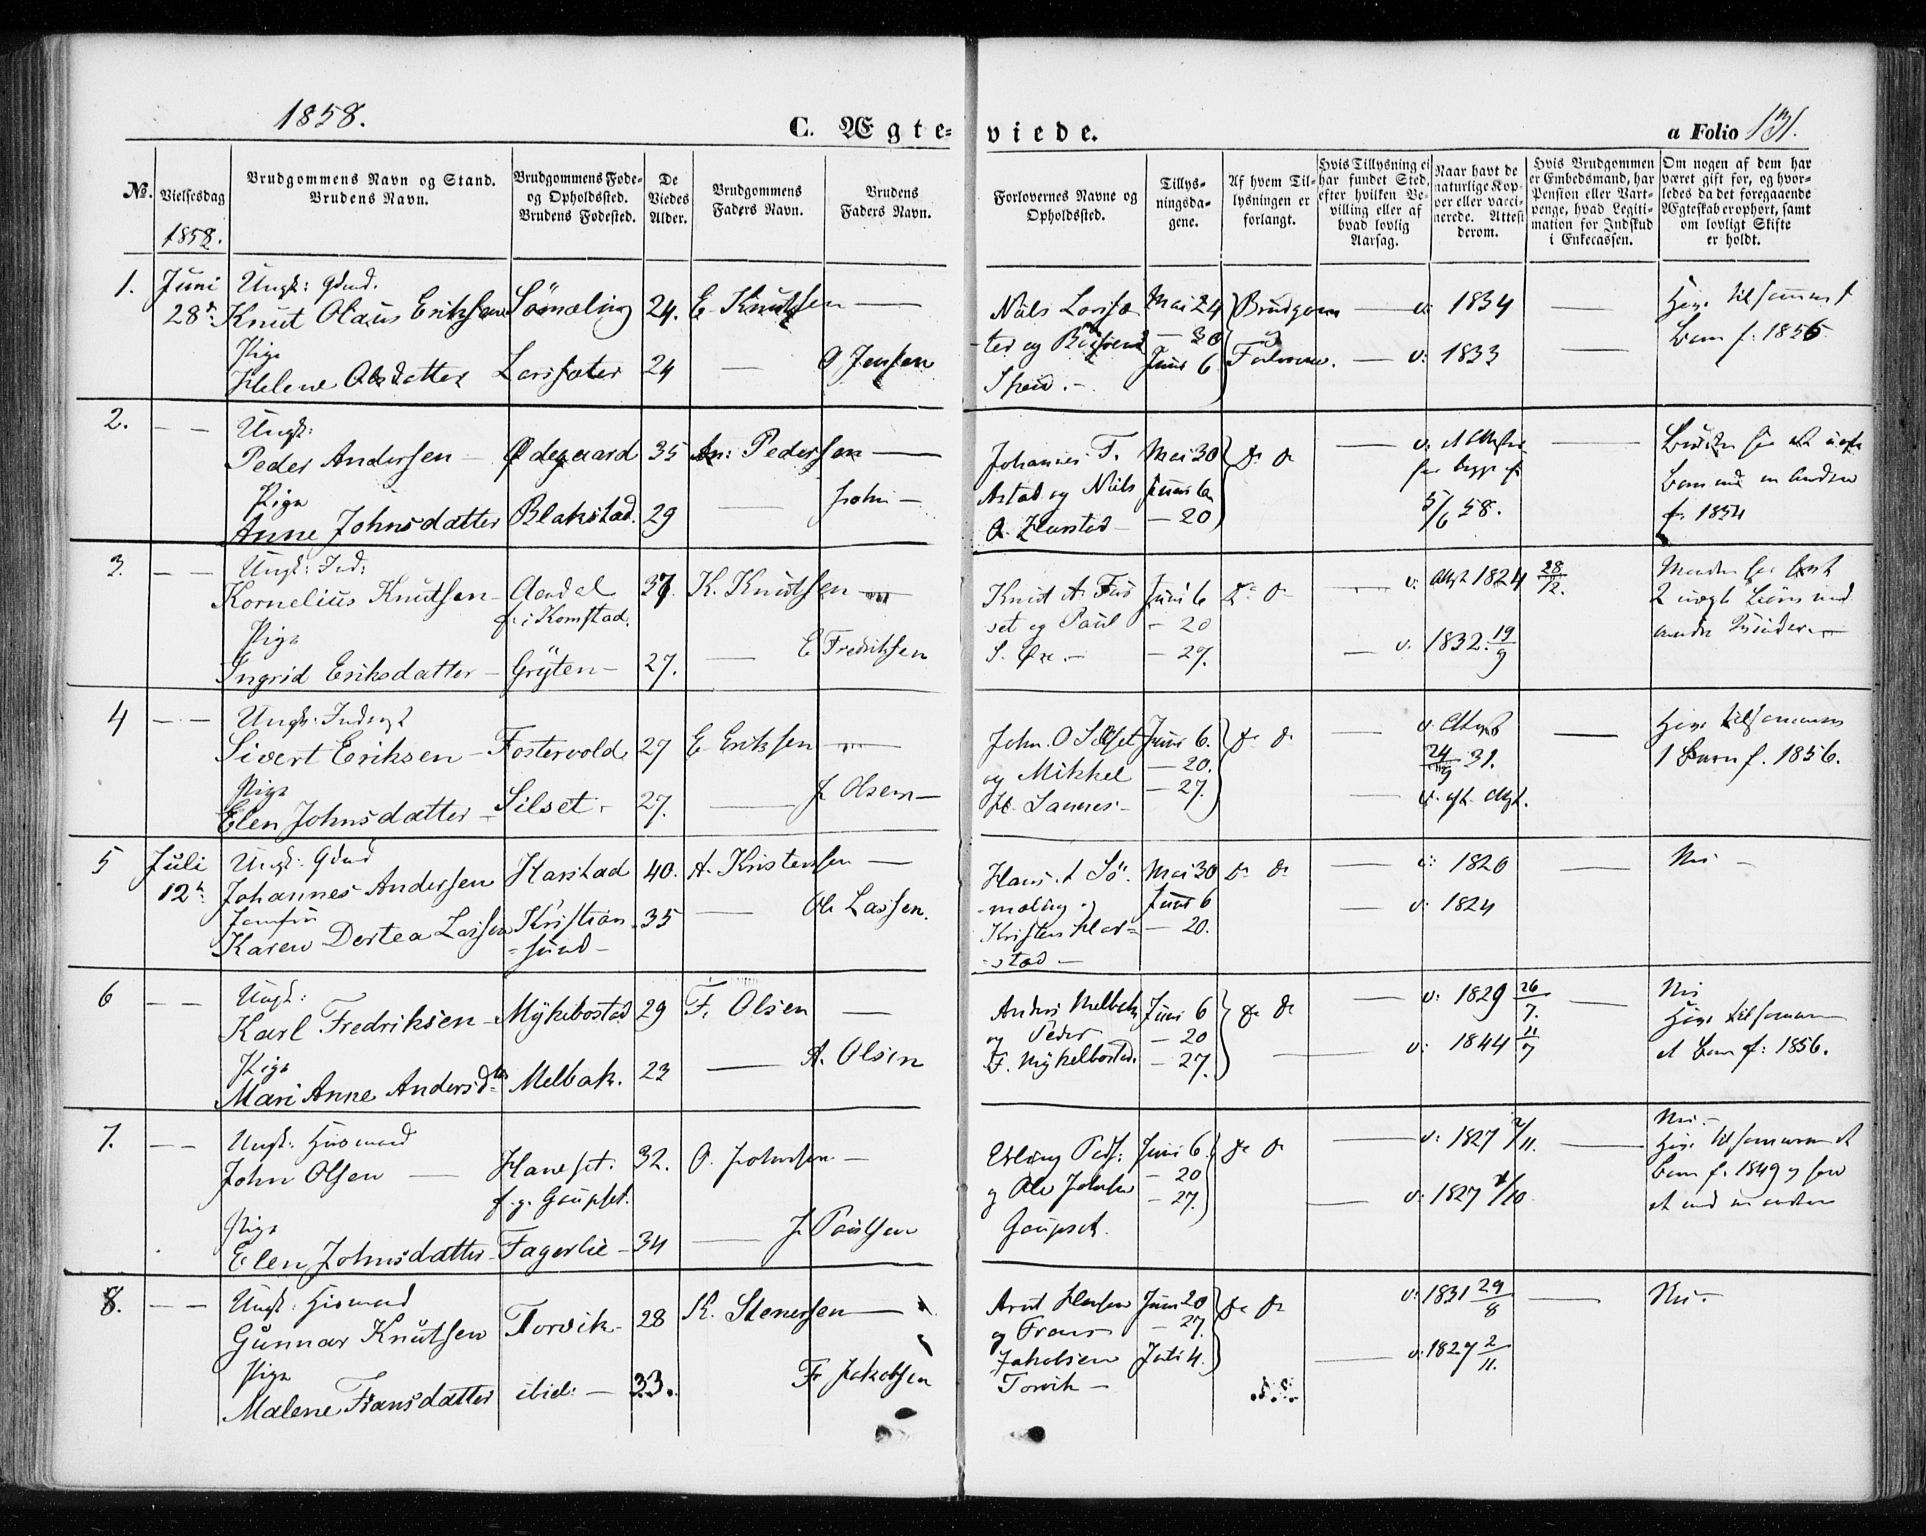 1858.
C. Ægte-
viede.
a Folio 131.
No.
Vielsesdag
1858.
Brudgommens Navn og Stand.
Brudens Navn.
Brudgommens Føde-
og Opholdssted.
Brudens Fødested.
De
Viedes
Alder.
Brudgommens
Faders Navn.
Brudens
Faders Navn.
Forlovernes Navne og
Opholdssted.
Tillys-
ningsda-
gene.
Af hvem Til-
lysningen er
forlangt.
Hvis Tillysning ei
har fundet Sted,
efter hvilken Be-
villing eller af
hvad lovlig
Aarsag.
Naar havt de
naturlige Kop-
per eller vacci-
nerede. Attest
derom.
Hvis Brudgommen
er Embedsmand, har
Pension eller Vart-
penge, hvad Legiti-
mation for Indskud
i Enkecassen.
Om nogen af dem har
været gift før, og hvor-
ledes da det foregaaende
Ægteskab er ophørt, samt
om lovligt Skifte
er holdt.
1. Juni Ungk: Gdmd.
28de Knut Olaus Eriksen Sömæling 24. E. Knutsen —
Pige
Helene Olsdatter Larssæter 24 — O Jensen
Mai 24 Brudgom — v: 1834 — Have tilsammen et
— 30 Barn f. 1856.
Juni 6 — v: 1833 —
2. — — Ungk:
Peder Andersen — Ødegaard 35 An: Pedersen —
Pige
Anne Johnsdatter Blakstad. 29 — John —
Johannes F. Mai 30 do do — v. Attester —
Astad og Nils Juni 6 for begge af
O. Harstad — — 20 5/6 58. f. 1854
3. — — Ungk: Ind:
Kornelius Knutsen — Aandal 37. K. Knutsen —
f. i Komstad.
Pige
Ingrid Eriksdatter — Gryten — 27. — E Fredriksen
Knut A. Fus Juni 6 do do — v: Attest 1824 28/12.
set og Paul — 20
S. Øre. — — 27. — v. 1832. 19/9
4 — — Ungk:
Sivert Eriksen — Fostervold 27 E. Eriksen —
Pige
Elen Johnsdatter — Silset 27. — J Olsen —
John. O Silset Juni 6. do do — v. Attest — Have tilsammen
og Mikkel — 20. 24/9 31. 1 Barn f. 1856.
H. Sannes — — 27. —
5 Juli Ungk: Gdmd
12te Johannes Andersen Harstad 40. A. Kristensen —
Jomfru
Karen Dortea Lassen Kristian- 35 — Ole Lassen.
-sund —
Hans A Sö- Mai 30 do do — v: 1820 — Nei —
-mæling og Juni 6 — v: 1824
Kristen Har- — 20.
-stad —
6 — — Ungk:
Karl Fredriksen — Myklebostad 29 F. Olsen —
Pige
Mari Anne Andersdtr Melbak. 23 — A. Olsen
Anders Melbak Juni 6 do do — v: 1829 26/7. — Nei
og Peder — 20 Have tilsammen
F. Myklebostad. — 27. — v: 1844 11/7 et Barn f: 1856.
7. — — Ungk: Husmand
John Olsen — Haneset. 32. O. Johnsen —
f. p. Gaupset.
Pige
Elen Johnsdatter — Fagerlie — 34 — J Paulsen
Juni 6 do do — v: 1827 2/11. — Nei. —
og Ole — 20 Have tilsammen et
— 27. — v: 1827 Barn f. 1849 og
Gaupset. et med en anden
8. — — Ungk: Husmand
Gunnar Knutsen Torvik — 28 K. Stenersen —
Pige
Malene Fransdatter ibid: — 33. Fr Jakobsen
Juni 20 do do v: 1831 29/8 — Nei. —
og Frans — 27.
Jakobsen Juli 4. — v: 1827 2/11.
Torvik —